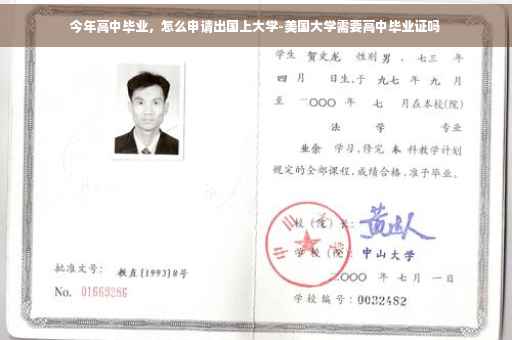 今年高中毕业，怎么申请出国上大学-美国大学需要高中毕业证吗
学生 贺文龙 性别 男，七三 年
四 月 日生，于 九七 年 九 月
至 二〇〇〇 年 七 月在本校(院)
法 学 专业
业余 学习，修完 本 科教学计划
规定的全部课程，成绩合格，准予毕业。
校（院）长：
学 校（院）： 中山大学
二〇〇〇 年 七 月 一 日
批准文号： 教直[1993]8号
No. 01663286
学校编号：0032482